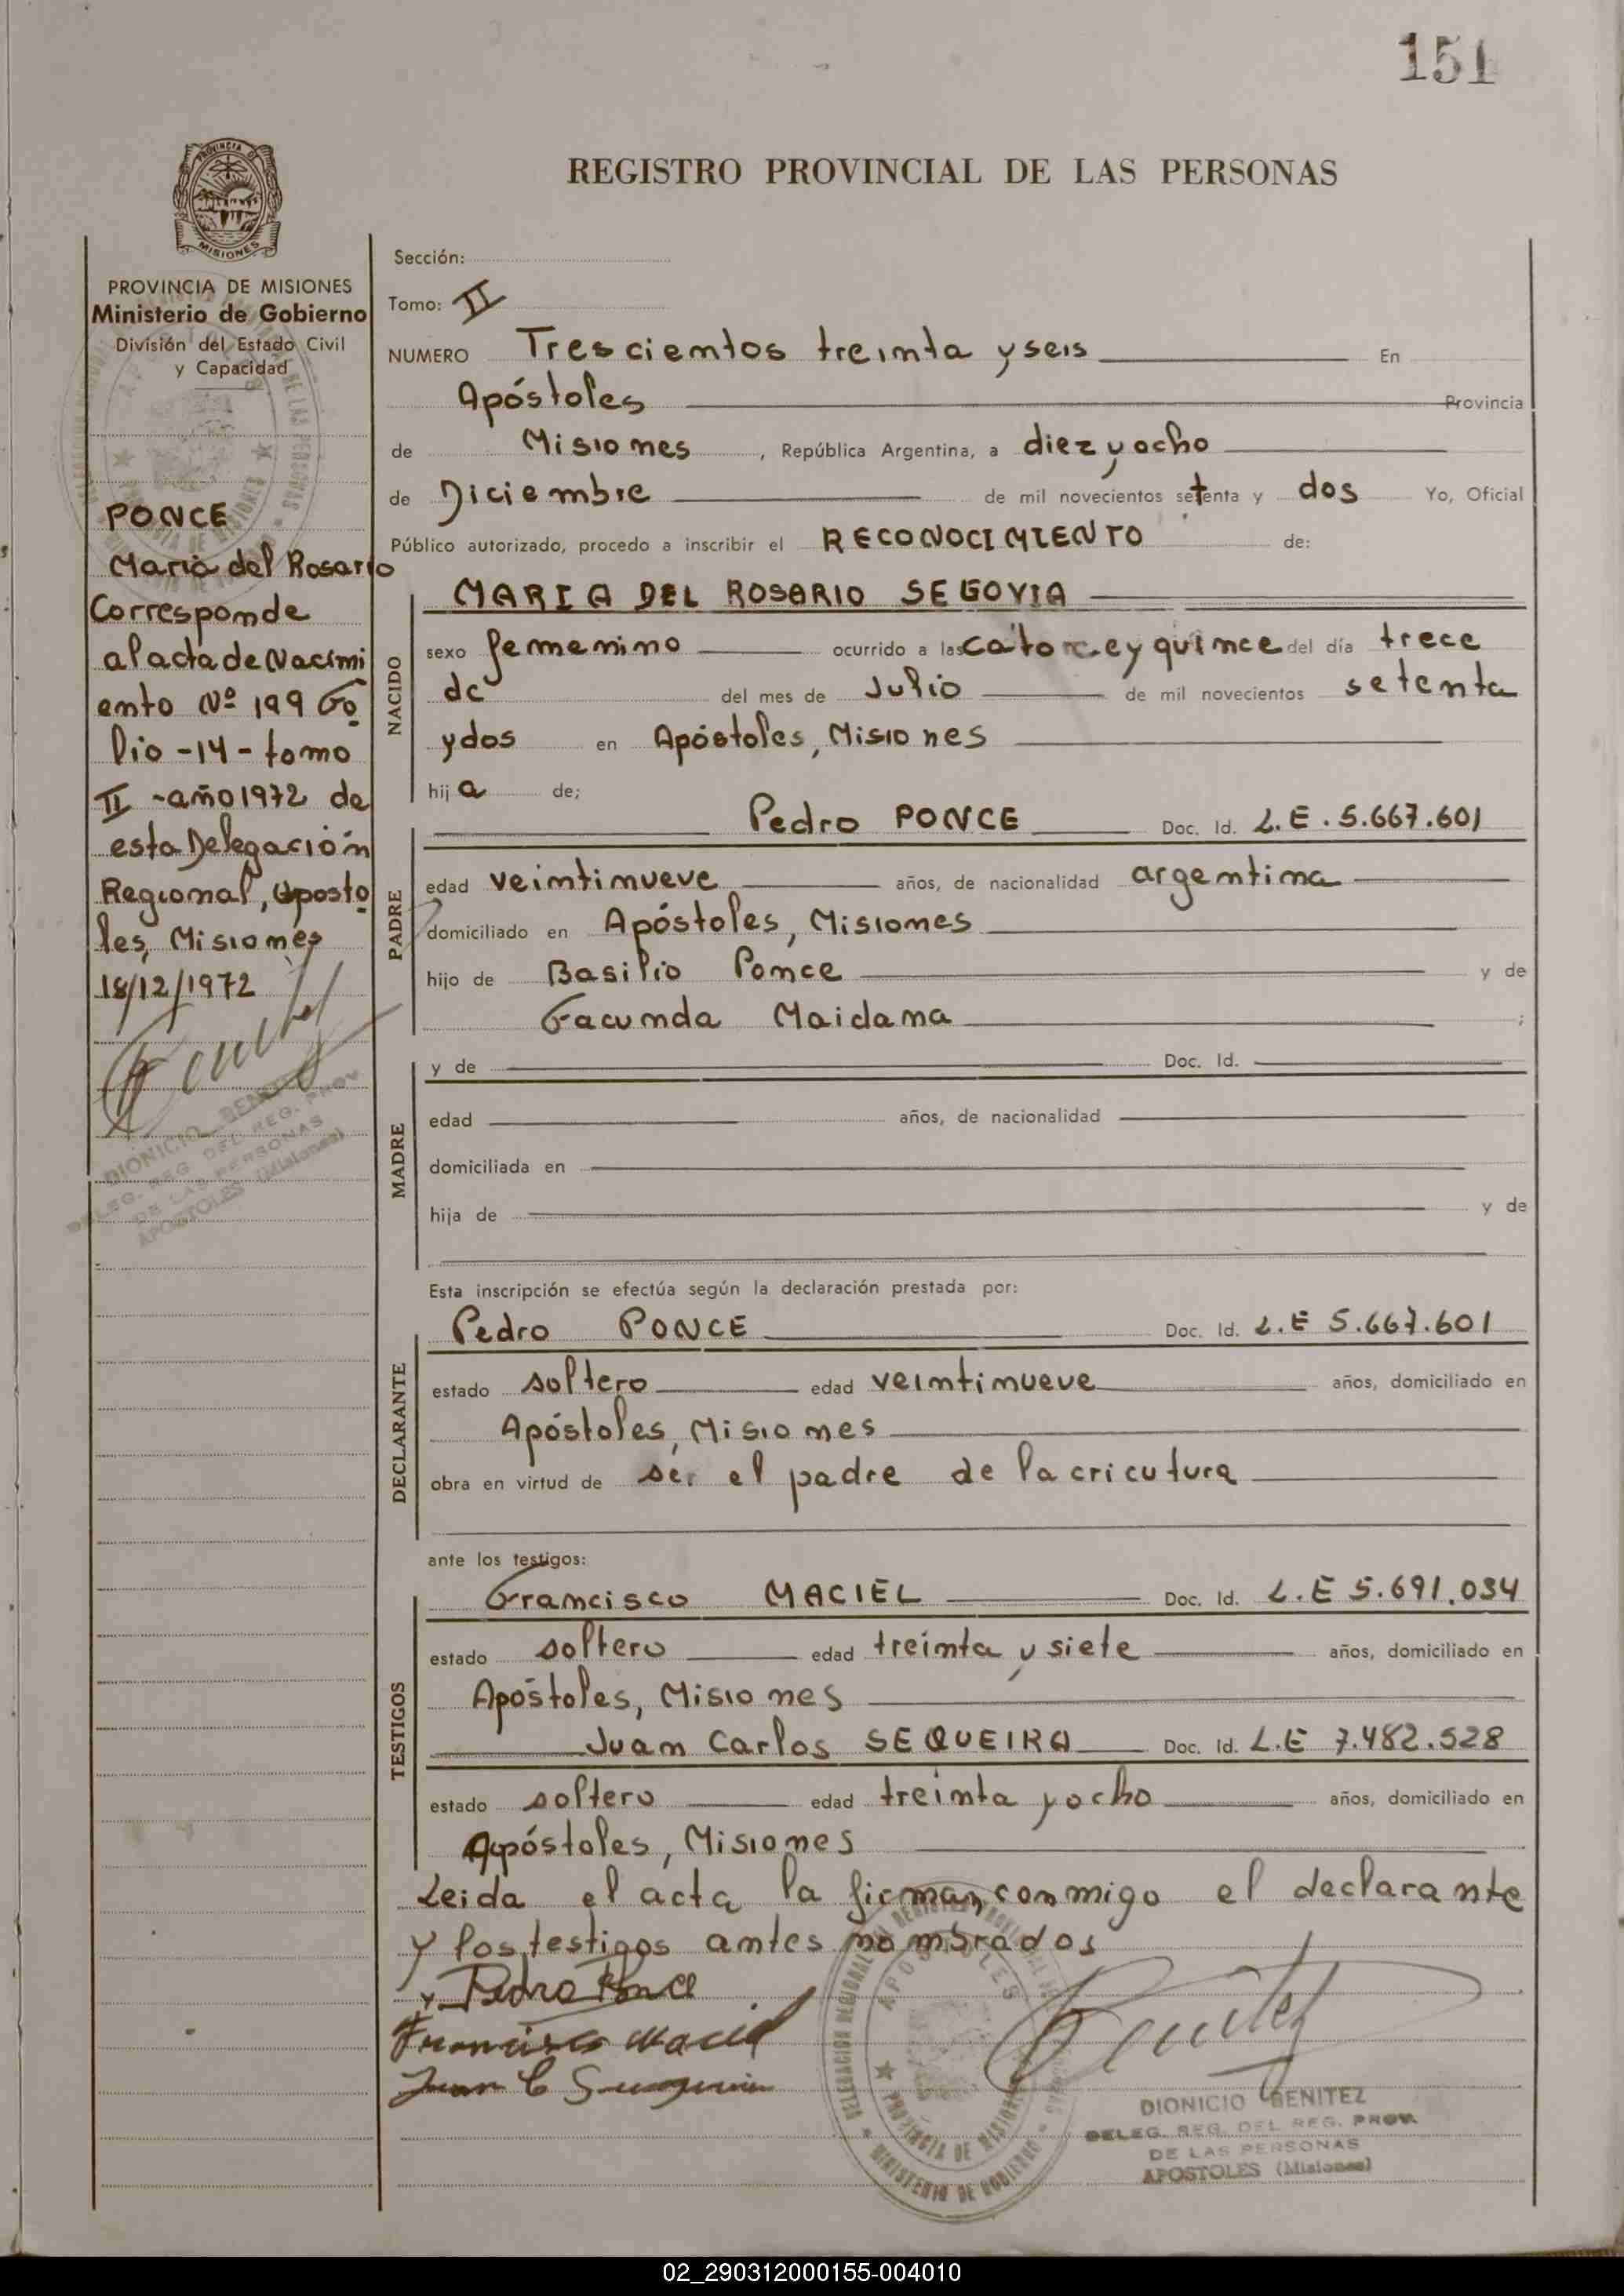 151
REGISTRO PROVINCIAL DE LAS PERSONAS
PROVINCIA DE
MISIONES
PROVINCIA DE MISIONES
Ministerio de Gobierno
División del Estado Civil
y Capacidad
PONCE
Maria del Rosario
Corresponde
al acta de Nacimi
ento Nº 199 Fo
lio -14- tomo
II -año 1972 de
esta Delegación
Regional, Aposto
les, Misiones
18/12/1972
DIONICIO BENITEZ
DELEG. REG. DEL REG. PROV.
DE LAS PERSONAS
APOSTOLES (Misiones)
Sección:
Tomo: II
NUMERO Trescientos treinta y seis En
Apóstoles Provincia
de Misiones, República Argentina, a diez y ocho
de Diciembre de mil novecientos setenta y dos Yo, Oficial
Público autorizado, procedo a inscribir el RECONOCIMIENTO de:
NACIDO
MARIA DEL ROSARIO SEGOVIA
sexo femenino ocurrido a las catorce y quince del día trece
de del mes de Julio de mil novecientos setenta
y dos en Apóstoles, Misiones
hija de;
PADRE
Pedro PONCE Doc. Id. L.E. 5.667.601
edad veintinueve años, de nacionalidad argentina
domiciliado en Apóstoles, Misiones
hijo de Basilio Ponce y de
Facunda Maidana ;
MADRE
y de Doc. Id.
edad años, de nacionalidad
domiciliada en
hija de y de
Esta inscripción se efectúa según la declaración prestada por:
DECLARANTE
Pedro PONCE Doc. Id. L.E 5.667.601
estado soltero edad veintinueve años, domiciliado en
Apóstoles, Misiones
obra en virtud de ser el padre de la cricutura
ante los testigos:
TESTIGOS
Francisco MACIEL Doc. Id. L.E 5.691.034
estado soltero edad treinta y siete años, domiciliado en
Apóstoles, Misiones
Juan Carlos SEQUEIRA Doc. Id. L.E 7.482.528
estado soltero edad treinta y ocho años, domiciliado en
Apóstoles, Misiones
Leida el acta la firman conmigo el declarante
y los testigos antes nombrados
Pedro Ponce
Francisco Maciel
Juan C
DELEGACION REGIONAL DEL REGISTRO PROVINCIAL DE LAS PERSONAS
APOSTOLES
PROVINCIA DE MISIONES
MINISTERIO DE GOBIERNO
DIONICIO BENITEZ
DELEG. REG. DEL REG. PROV.
DE LAS PERSONAS
APOSTOLES (Misiones)
02_290312000155-004010